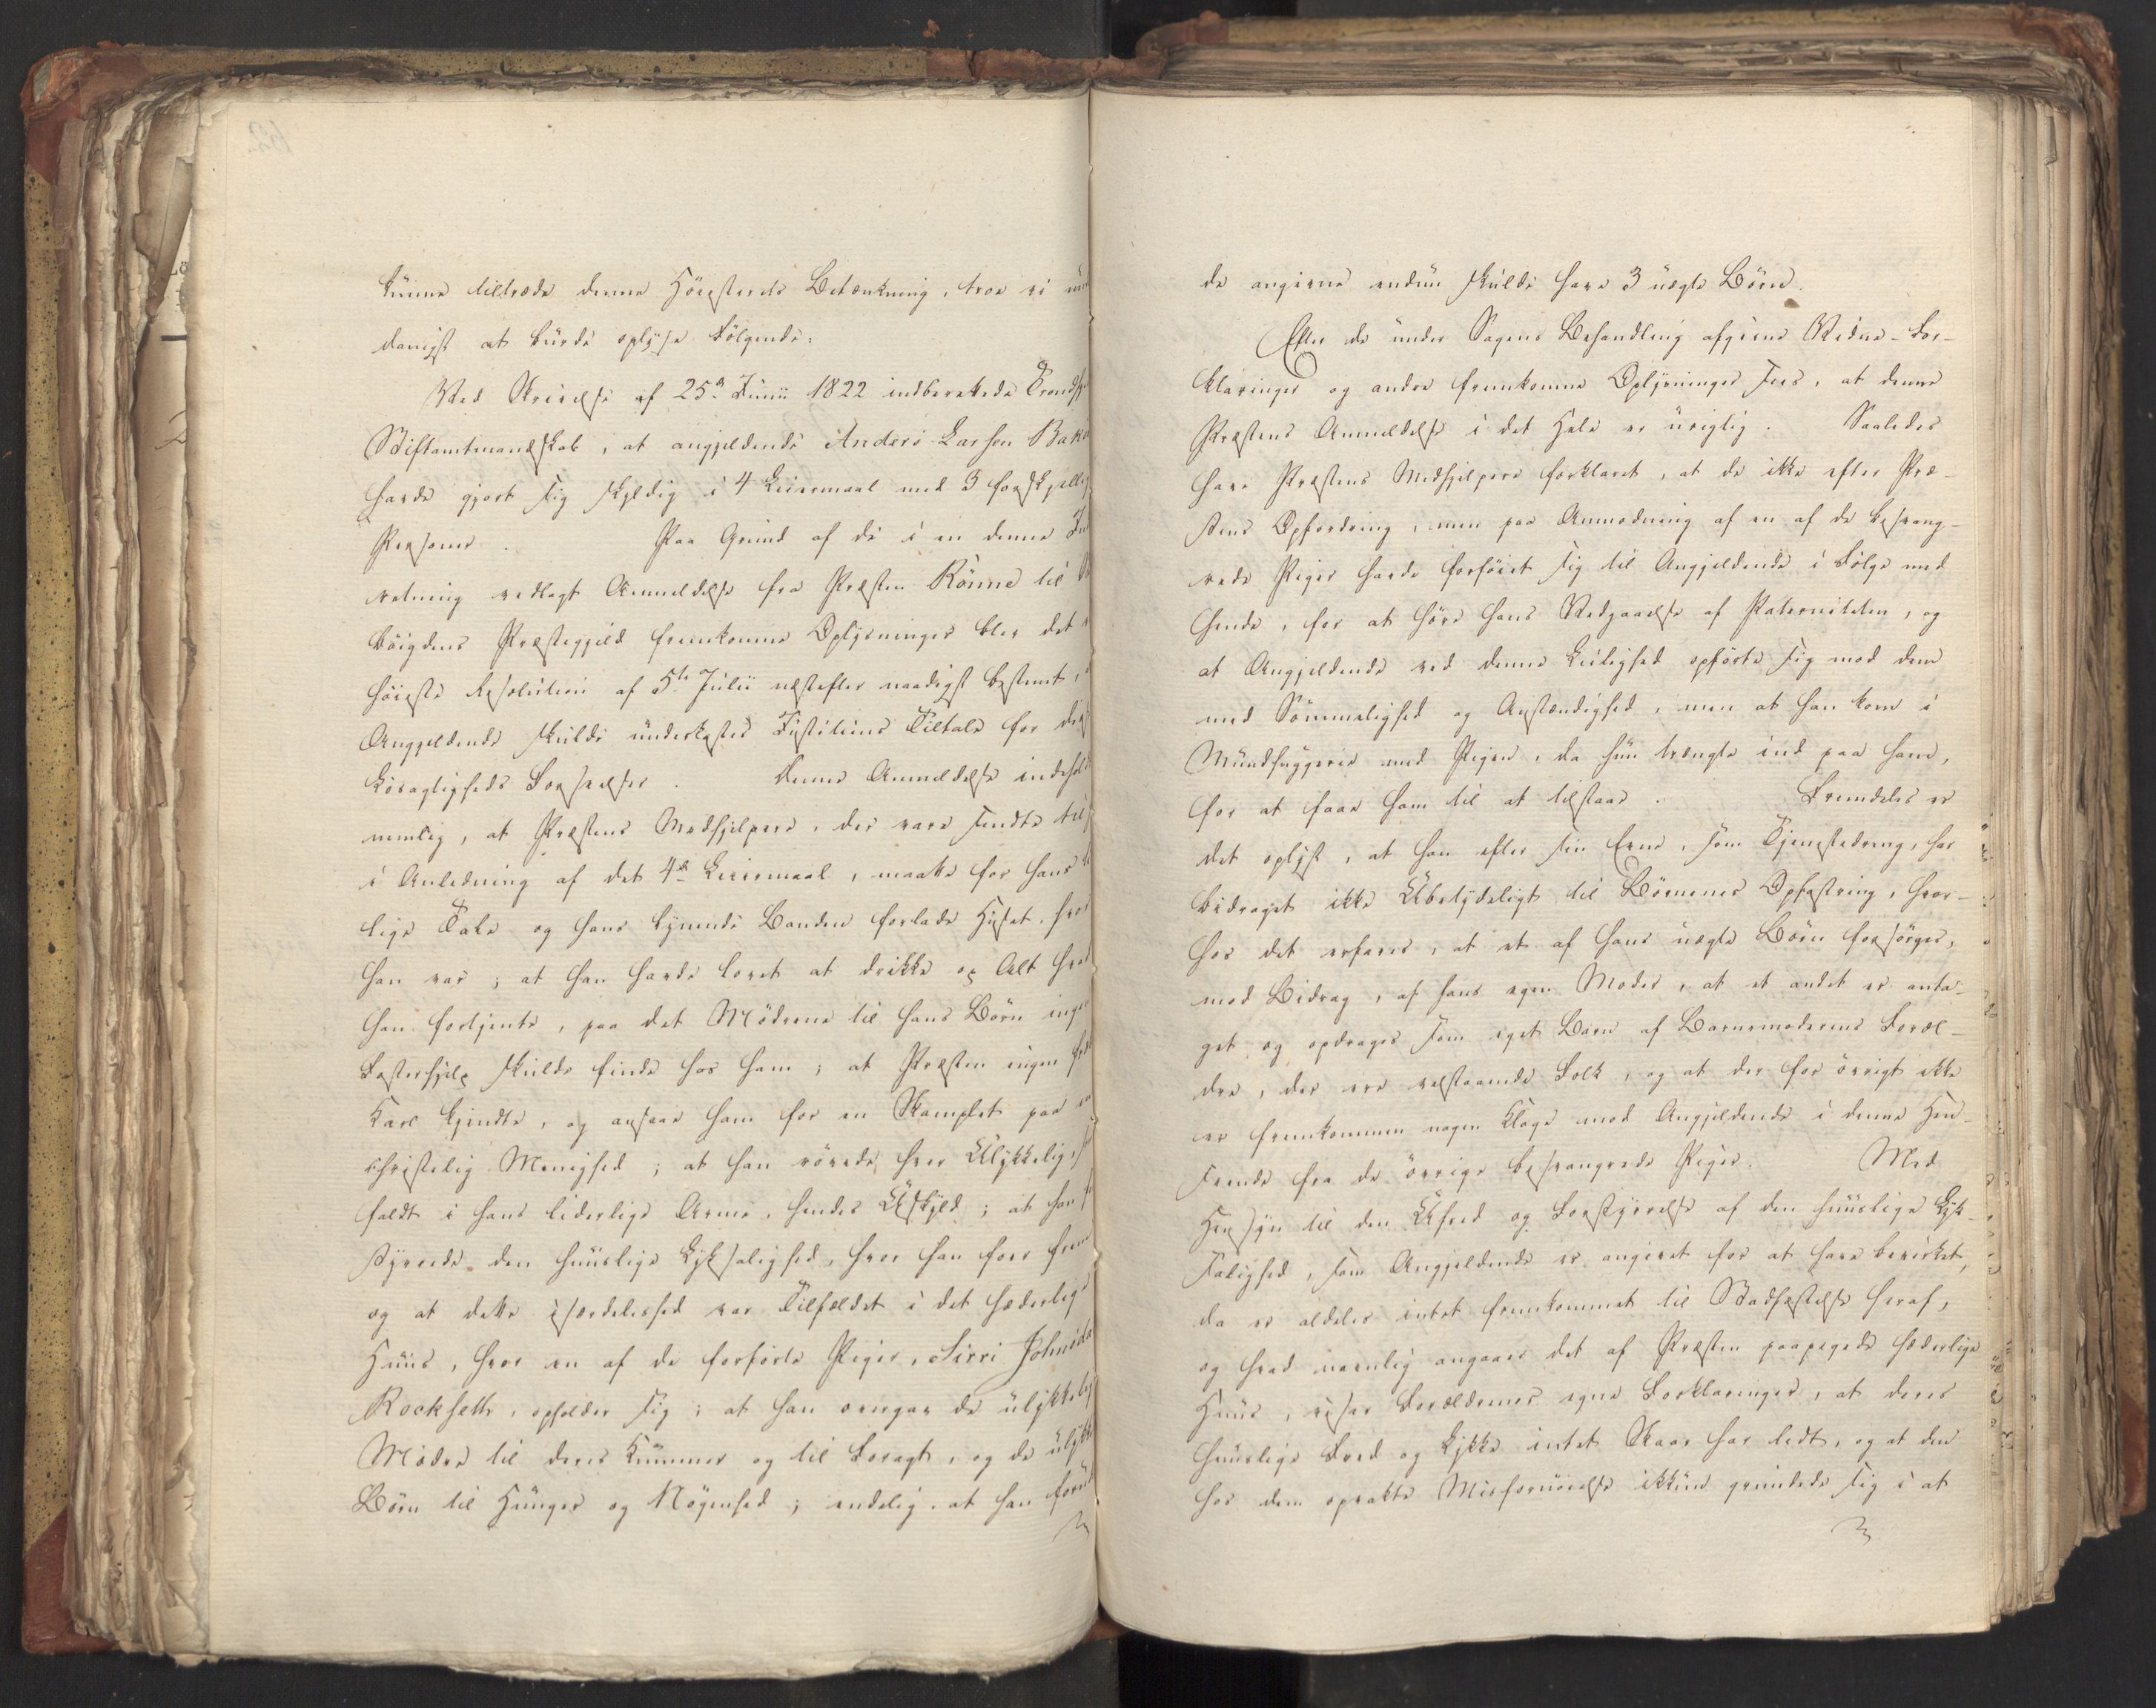 kunne tiltræde denne Höiesterets Betænkning, troe vi un
danigst at burde oplyse Fölgende:
Ved Skrivelse af 25de Junii 1822 indberettede Trondhj
Stiftamtmandskab, at angjeldende Anders Larsen Bak
havde gjort sig skyldig i 4 Leiermaal med 3 forskjellig
Personer. Paa Grund af de i en denne Ind
retning vedlagt Anmeldelse fra Præsten Rönne til
böigdens Præstegjeld fremkomne Oplysninger blev det
höieste Resolution af 5te Julii næstefter naadigst bestemt,
Angjeldende skulde underkastes Justitiens Tiltale for dis
Lösagtigheds Forseelser. Denne Anmeldelse indeholdt
nemlig, at Præstens Medhjelpere, der vare sendte til
i Anledning af det 4de Leiermaal, maatte for hans
lige Tale og hans lynende Banden forlade Huset, hvor
han var; at han havde lovet at drikke op Alt hvad
han fortjente, paa det Mödrene til hans Börn ingen
Fosterhjelp skulde finde hos ham; at Præsten ingen
Karl kjendte, og ansaae ham for en Skamplet paa en
christelig Menighed; at han rövede hver Ulykkelig,
faldt i hans liderlige Arme, hendes Uskyld; at han for
styrrede den huuslige Lyksalighed, hvor han foer frem
og at dette isærdeleshed var Tilfældet i det hæderlige
Huus, hvor en af de forförte Piger, Sirri Johnsda
Rockseth, opholder sig; at han overgav de ulykkelig
Mödre til deres Kummer og til Foragt, og de ulykke
Börn til Hunger og Nögenhed; endelig, at han foru
de angivne endnu skulde have 3 uægte Börn.
Efter de under Sagens Behandling afgivne Vidne-For-
klaringer og andre fremkomne Oplysninger sees, at denne
Præstens Anmeldelse i det Hele er urigtig. Saaledes
have Præstens Medhjelpere forklaret, at de ikke efter Præ-
stens Opfordring, men paa Anmodning af en af de besvang-
rede Piger havde forföiet sig til Angjeldende i Fölge med
hende, for at höre hans Vedgaaelse af Paterniteten, og
at Angjeldende ved denne Leilighed opförte sig mod dem
med Sömmelighed og Anstændighed, men at han kom i
Mundhuggerie med Pigen, da hun trængte ind paa ham,
for at faae ham til at tilstaae. Fremdeles er
det oplyst, at han efter sin Evne, som Tjenestedreng, har
bidraget ikke Ubetydeligt til Börnenes Opfostring, hvor-
hos det erfares, at et af hans uægte Börn forsörges,
mod Bidrag, af hans egen Moder, at et andet er anta-
get og opdrages som eget Barn af Barnemoderens Foræl-
dre, der ere velstaaende Folk, og at der for övrigt ikke
er fremkommen nogen Klage mod Angjeldende i denne Hen-
seende fra de övrige besvangrede Piger. Med
Hensyn til den Ufred og Forstyrrelse af den huuslige Lyk-
salighed, som Angjeldende er angivet for at have bevirket,
da er aldeles intet fremkommet til Stadfæstelse heraf,
og hvad navnlig angaaer det af Præsten paapegede hæderlige
Huus, viser Forældrenes egne Forklaringer, at deres
huuslige Fred og Lykke intet Skaar har lidt, og at den
hos dem opvakte Misfornöielse ikkun grundede sig i at